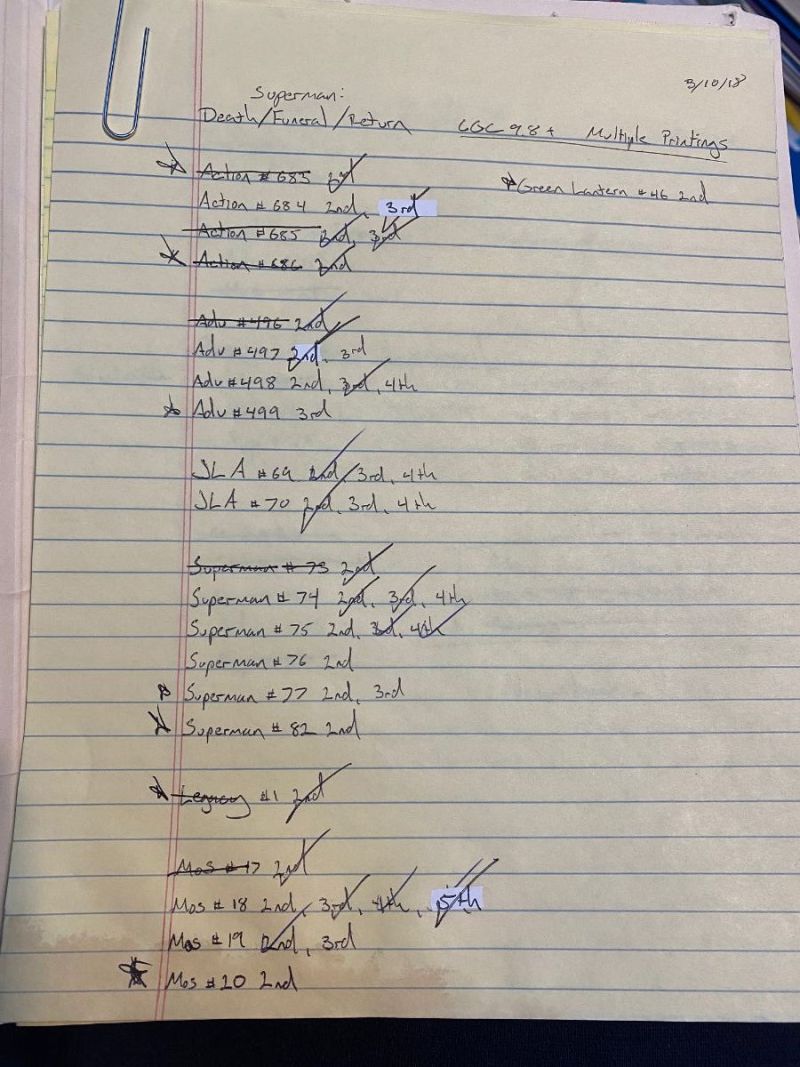 3/10/18
Superman:
Death/Funeral/Return CGC 9.8+ Multiple Printings
Action #683 2nd
Green Lantern #46 2nd
Action #684 2nd, 3rd
Action #685 2nd, 3rd
Action #686 2nd
Adv #496 2nd
Adv #497 2nd, 3rd
Adv #498 2nd, 3rd, 4th
Adv #499 3rd
JLA #69 2nd, 3rd, 4th
JLA #70 2nd, 3rd, 4th
Superman #73 2nd
Superman #74 2nd, 3rd, 4th
Superman #75 2nd, 3rd, 4th
Superman #76 2nd
Superman #77 2nd, 3rd
Superman #82 2nd
Legacy #1 2nd
MoS #17 2nd
MoS #18 2nd, 3rd, 4th, 5th
MoS #19 2nd, 3rd
MoS #20 2nd